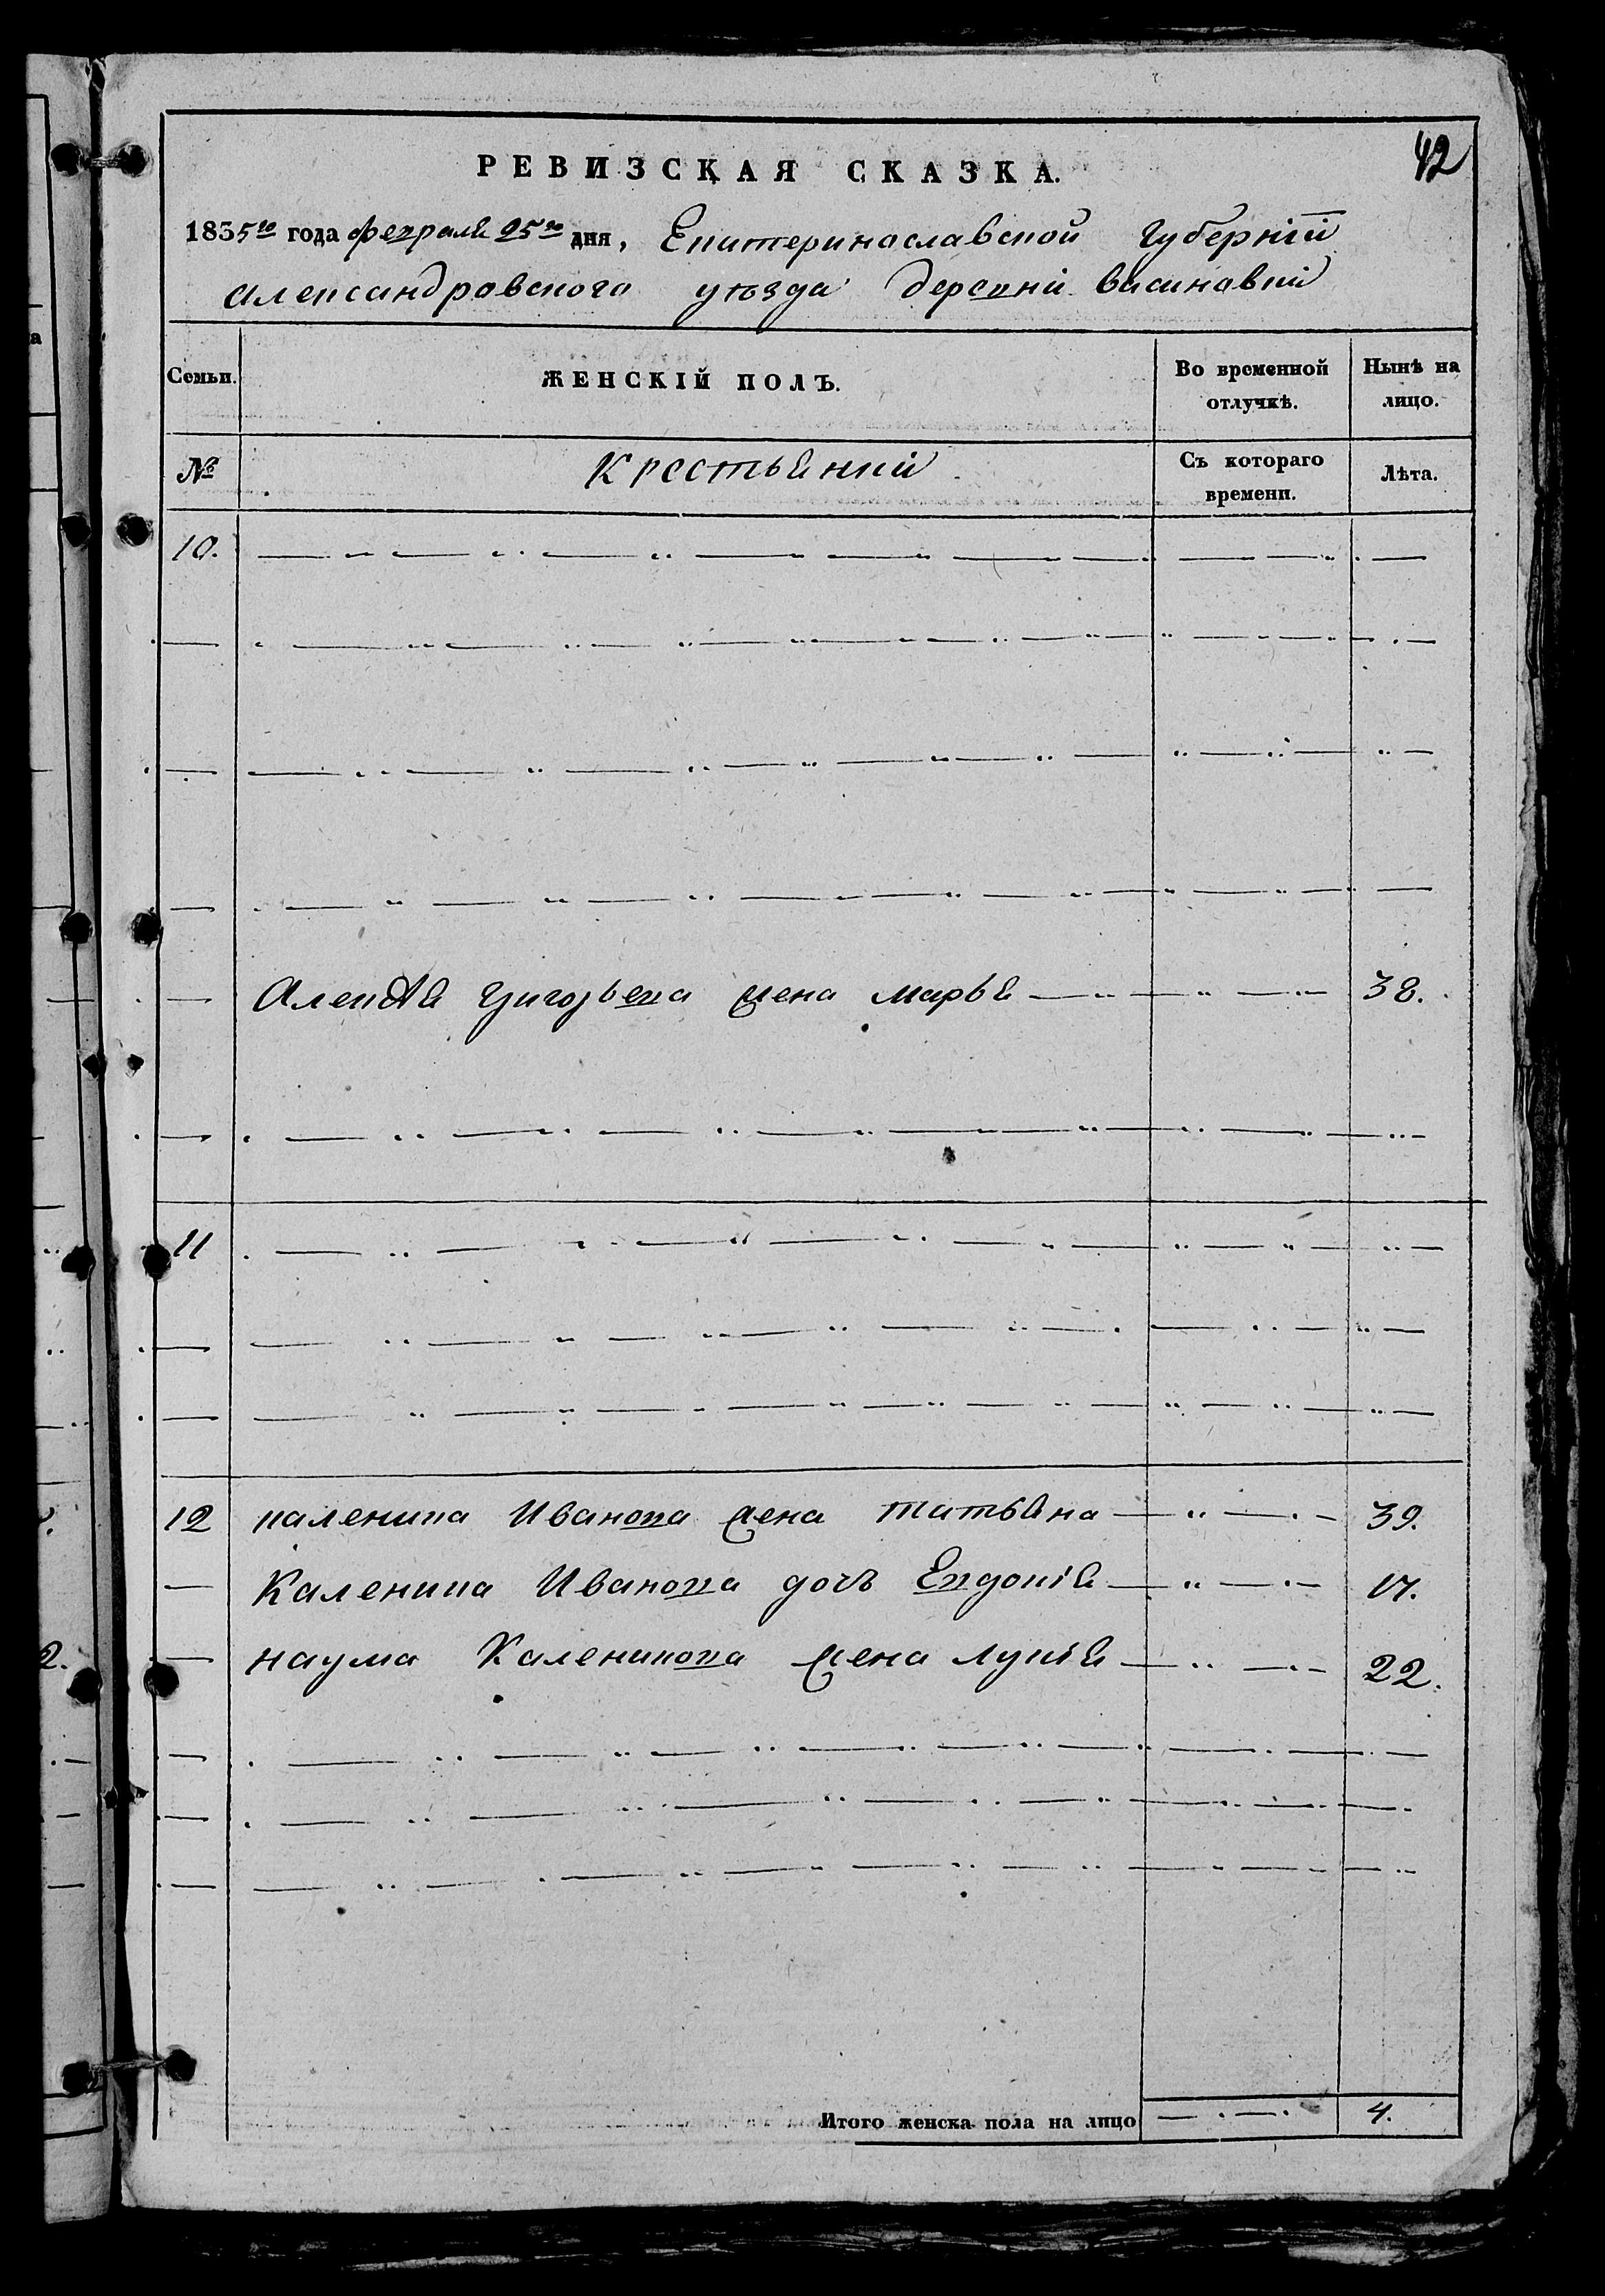 42
РЕВИЗСКАЯ СКАЗКА.
1835го года февраля 25го дня, Екатеринославской Губернiи
Александровского уѣзда деревни васиновки
Семьи. ЖЕНСКIЙ ПОЛЪ. Во временной отлучкѣ. Нынѣ на лицо.
№ Крестьянки Съ котораго времени. Лѣта.
10.
Алексѧя Григорьева жена марья 38.
11
12 каленика Иванова жена татьяна 39.
Каленика Иванова дочь Евдокiя 17.
наума Каленикова жена лукiя 22.
Итого женска пола на лицо 4.